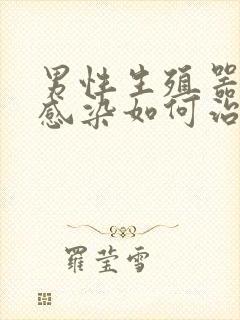 男性生殖器
感染如何治
羅莹雪